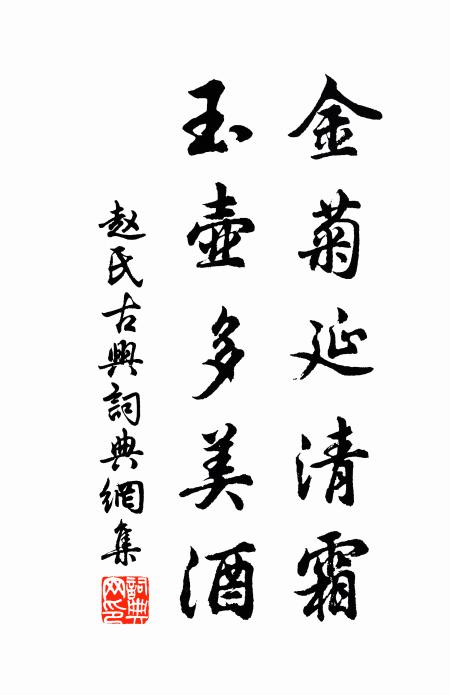 金菊延清霜
玉壺多美酒
赵氏古典詞典網集
詞典